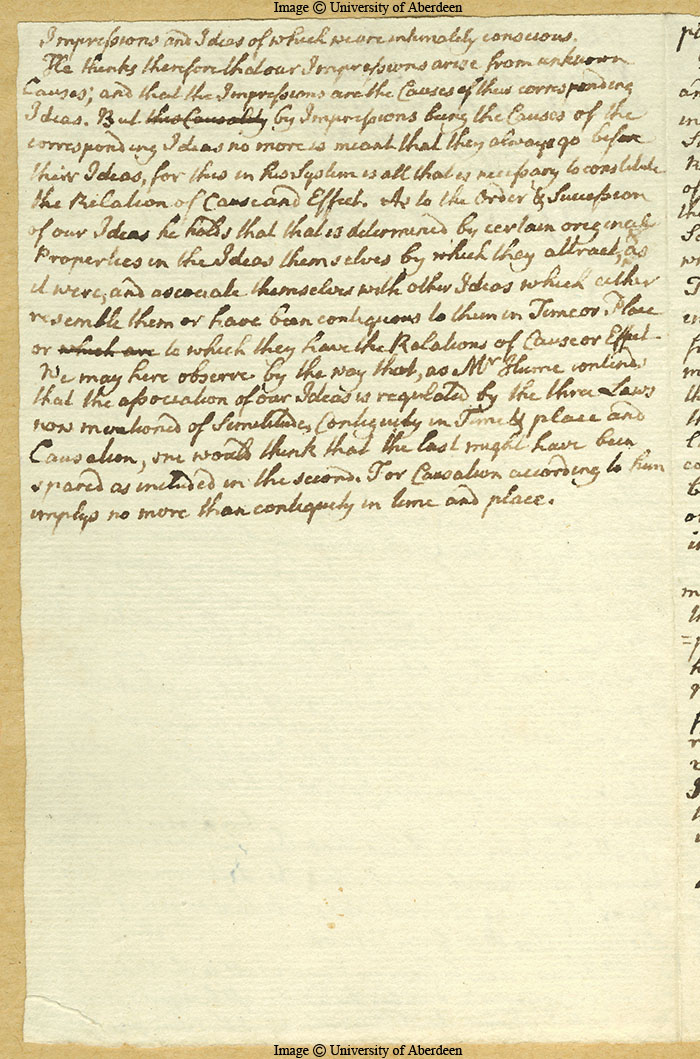 Image © University of Aberdeen
Impressions and Ideas of which we are intimately conscious.
He thinks therefore that our Impressions arise from unknown
Causes; and that the Impressions are the Causes of their corresponding
Ideas. But this Causality by Impressions being the Causes of the
corresponding Ideas no more is meant that they always go before
their Ideas, for this in his System is all that is necessary to constitute
the Relation of Cause and Effect. As to the Order & Succession
of our Ideas he holds that that is determined by certain original
Properties in the Ideas themselves by which they attract, as
it were, and associate themselves with other Ideas which either
resemble them or have been contiguous to them in Time or Place
or which are to which they have the Relations of Cause or Effect.
We may here observe by the way that, as Mr Hume contends
that the association of our Ideas is regulated by the three Laws
now mentioned of Similitude, Contiguity in Time & place and
Causation, one would think that the last might have been
spared as included in the second. For Causation according to him
implys no more than contiguity in time and place.
Image © University of Aberdeen